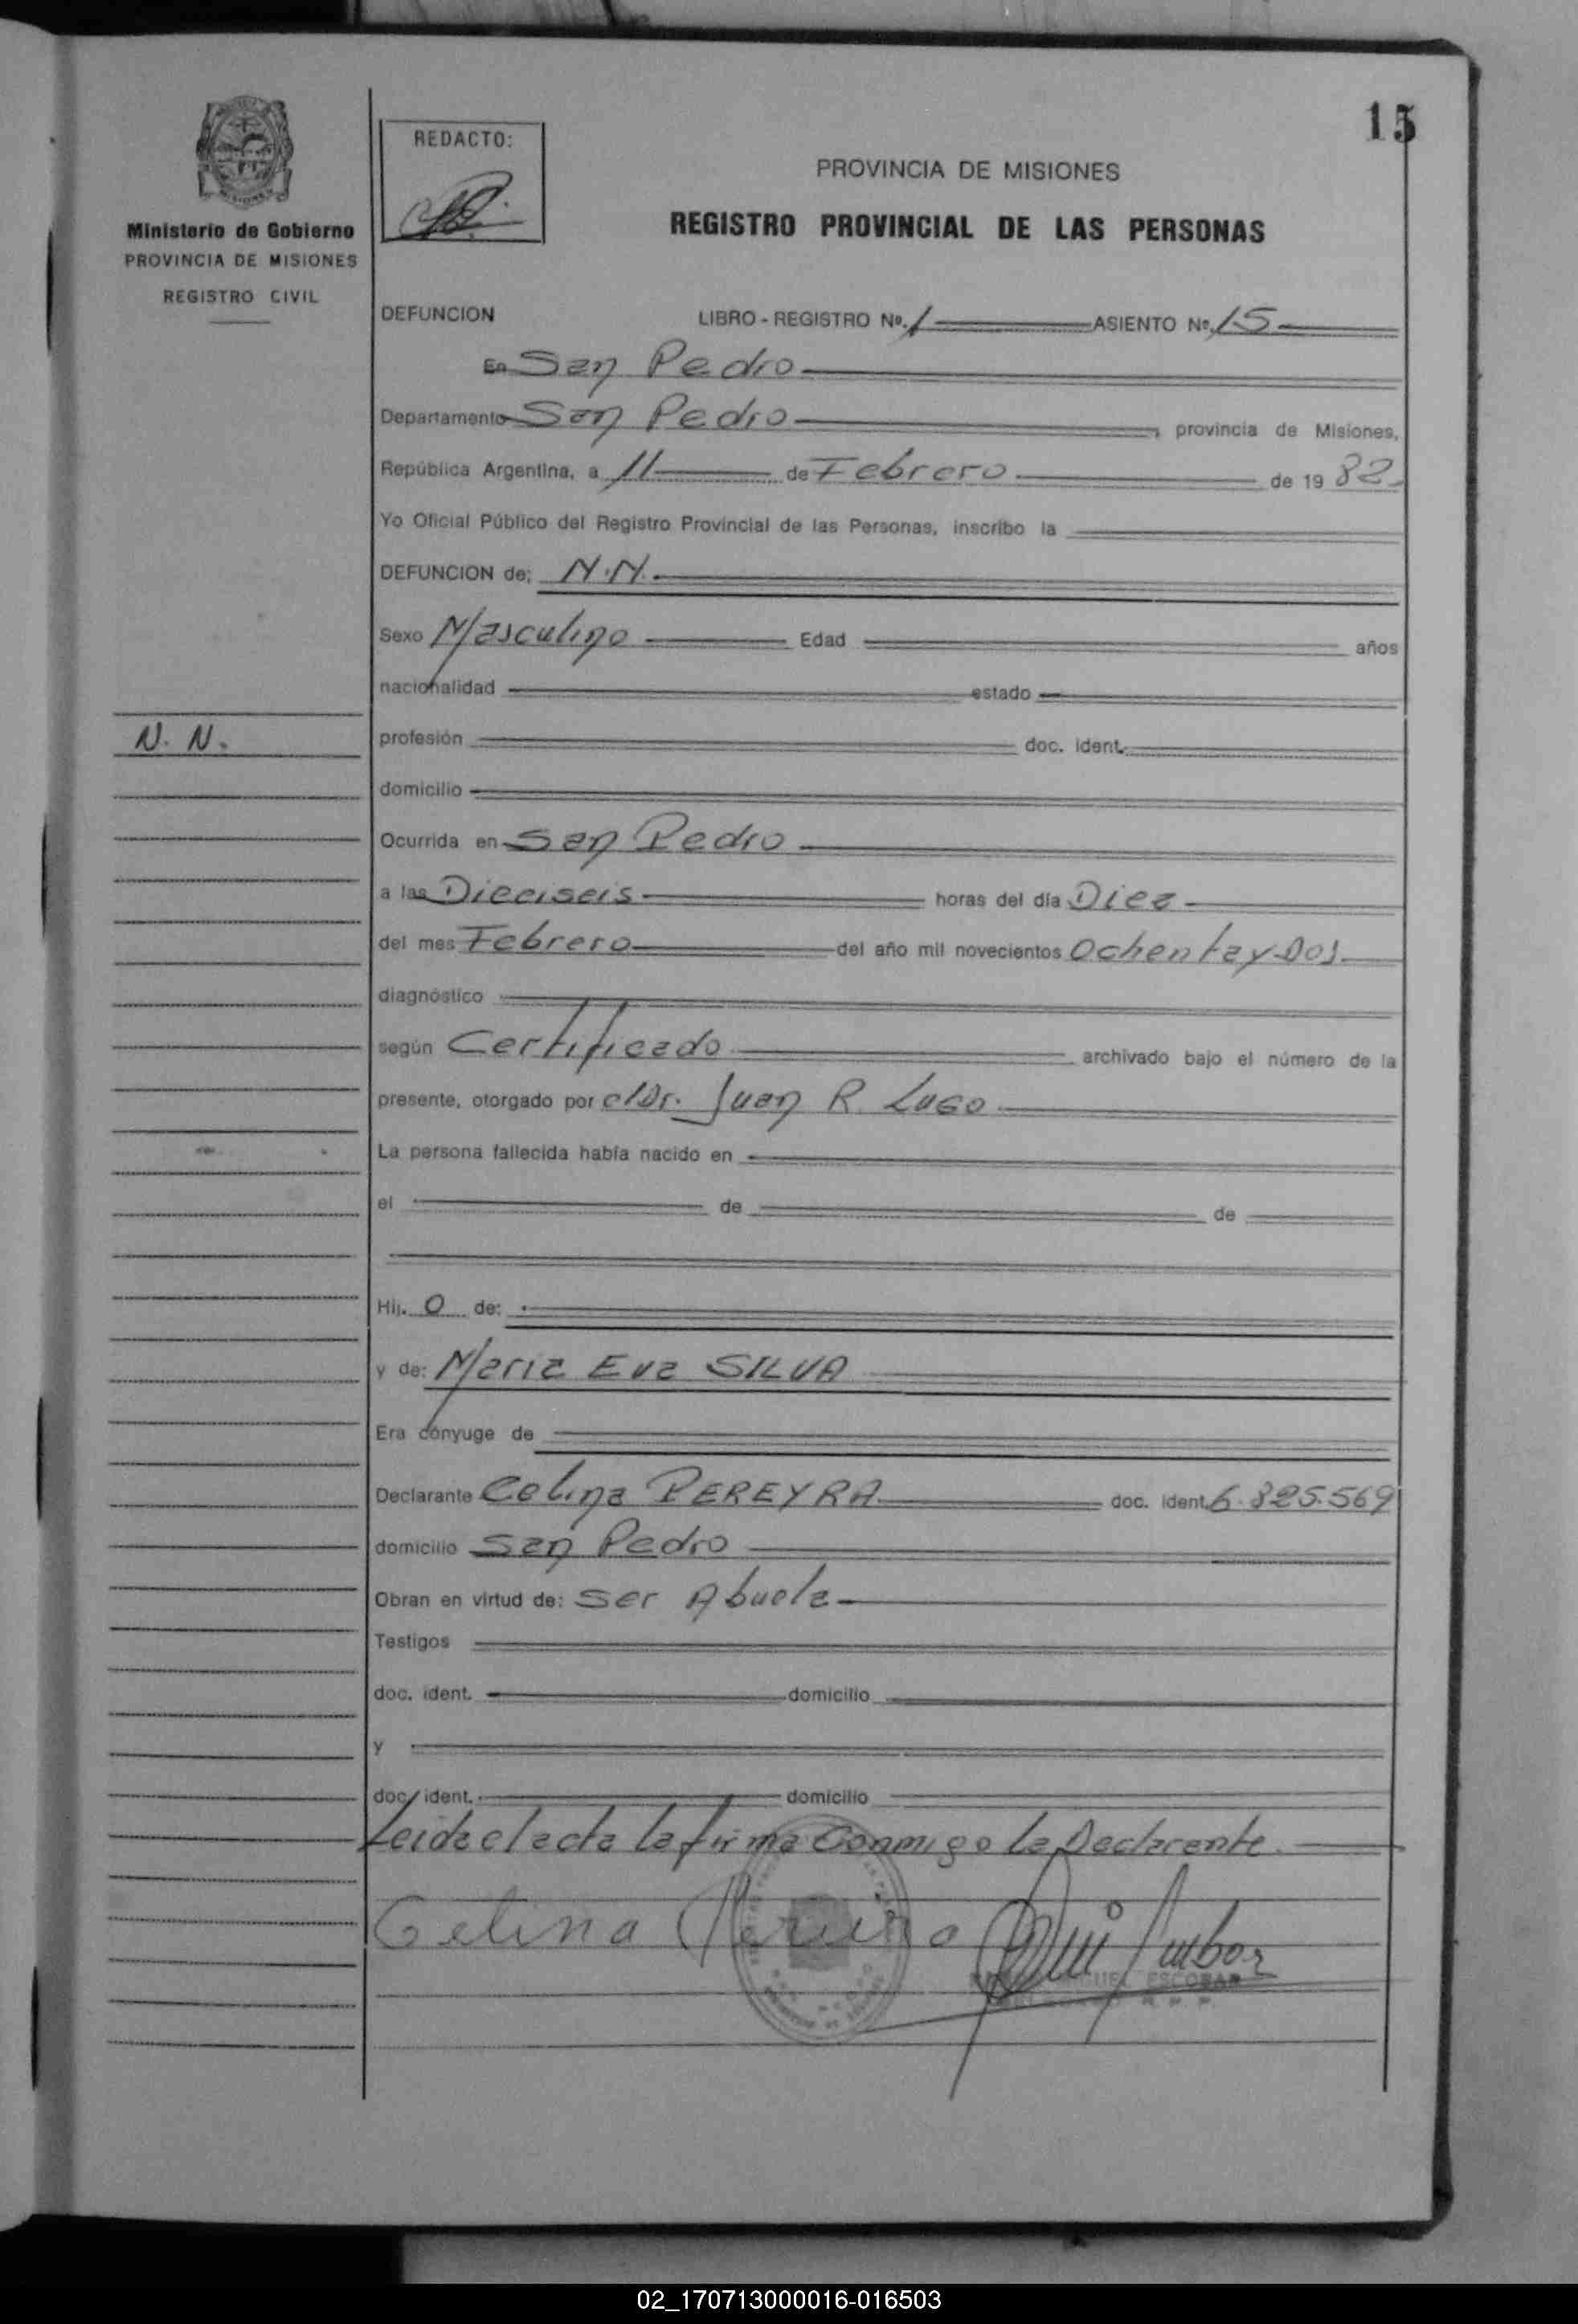 15
REDACTO:
PROVINCIA DE MISIONES
REGISTRO PROVINCIAL DE LAS PERSONAS
Ministerio de Gobierno
PROVINCIA DE MISIONES
REGISTRO CIVIL
DEFUNCION LIBRO - REGISTRO Nº. 1 ASIENTO Nº. 15
En San Pedro
Departamento San Pedro, provincia de Misiones,
República Argentina, a 11 de Febrero de 19 82
Yo Oficial Público del Registro Provincial de las Personas, inscribo la
DEFUNCION de; N.N.
Sexo Masculino Edad años
nacionalidad estado
N. N.
profesión doc. ident.
domicilio
Ocurrida en San Pedro
a las Dieciseis horas del día Diez
del mes Febrero del año mil novecientos Ochenta y Dos
diagnóstico
según Certificado archivado bajo el número de la
presente, otorgado por el Dr. Juan R. LUGO
La persona fallecida había nacido en
el de de
Hij. O de:
y de: Maria Eva SILVA
Era cónyuge de
Declarante Celina PEREYRA doc. ident. 6.825.569
domicilio San Pedro
Obran en virtud de: Ser Abuela
Testigos
doc. ident. domicilio
y
doc. ident. domicilio
Leida el acta la firma Conmigo la Declarante
Celina
ESCOBAR
02_170713000016-016503